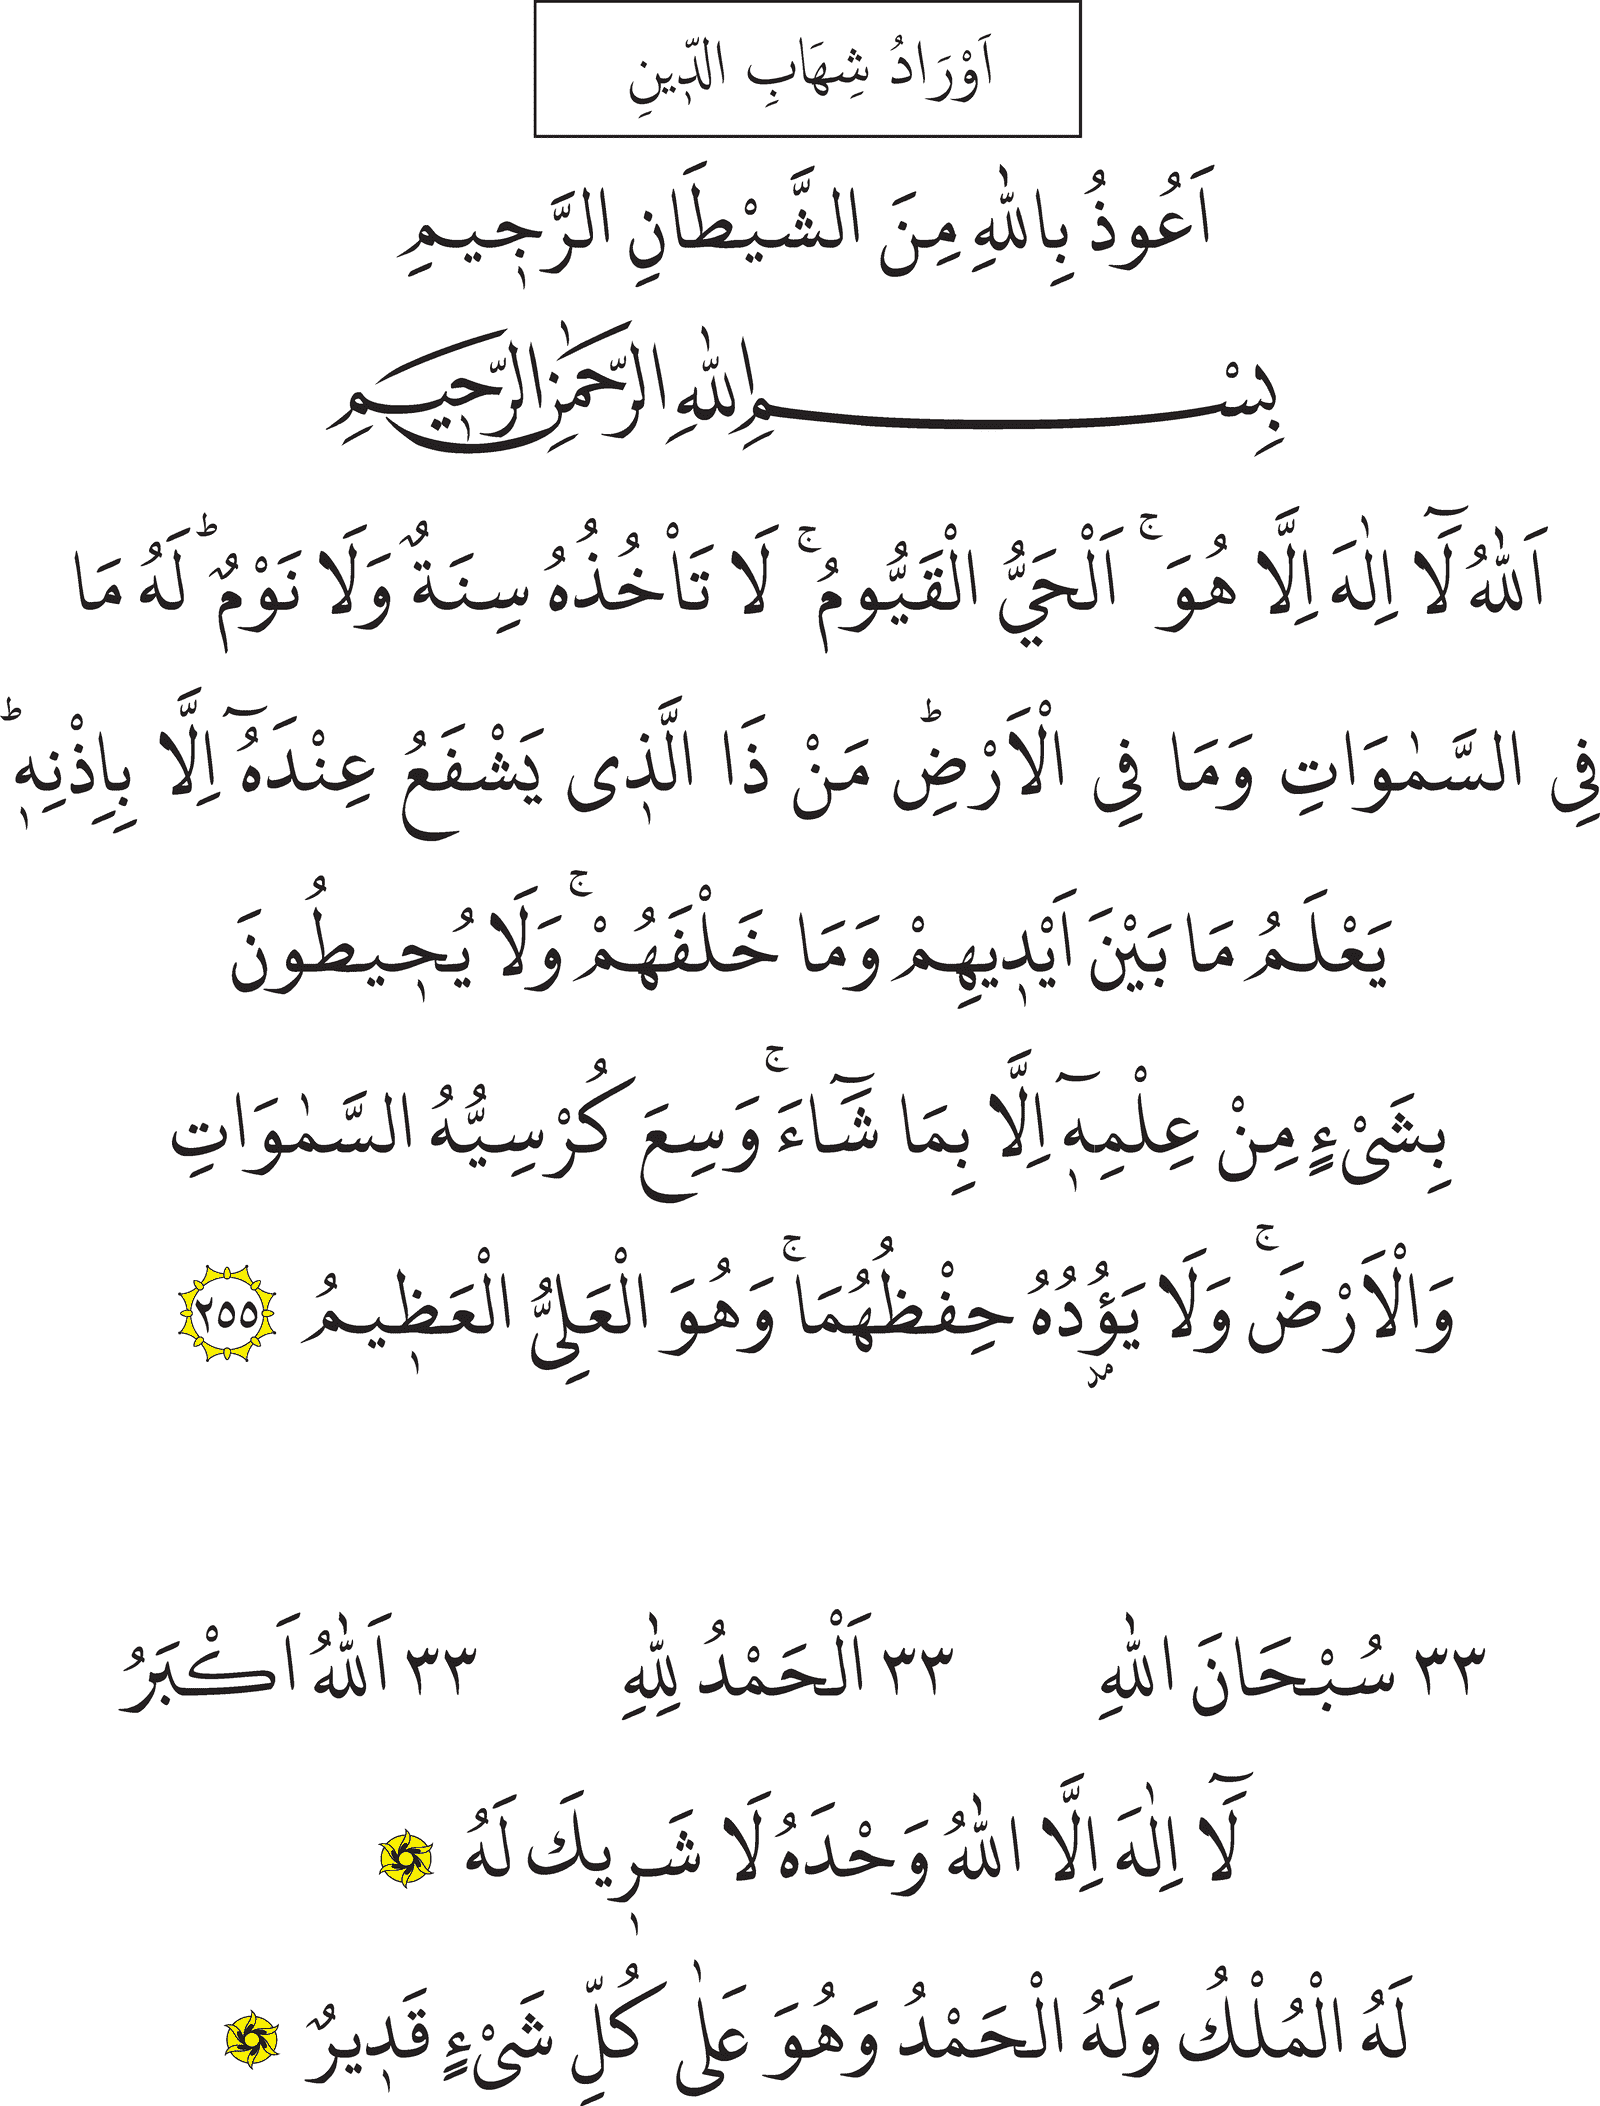 اَوْرَادُ شِهَابِ الدّ۪ينِ
اَعُوذُ بِاللّٰهِ مِنَ الشَّيْطَانِ الرَّج۪يمِ
بِسْمِ اللّٰهِ الرَّحْمٰنِ الرَّح۪يمِ
اَللّٰهُ لَٓا اِلٰهَ اِلَّا هُوَۚ اَلْحَيُّ الْقَيُّومُۚ لَا تَاْخُذُهُ سِنَةٌ وَلَا نَوْمٌۜ لَهُ مَا
فِى السَّمٰوَاتِ وَمَا فِى الْاَرْضِۜ مَنْ ذَا الَّذ۪ى يَشْفَعُ عِنْدَهُٓ اِلَّا بِاِذْنِه۪ۜ
يَعْلَمُ مَا بَيْنَ اَيْد۪يهِمْ وَمَا خَلْفَهُمْۚ وَلَا يُح۪يطُونَ
بِشَىْءٍ مِنْ عِلْمِه۪ٓ اِلَّا بِمَا شَٓاءَۚ وَسِعَ كُرْسِيُّهُ السَّمٰوَاتِ
وَالْاَرْضَۚ وَلَا يَؤُ۫دُهُ حِفْظُهُمَاۚ وَهُوَ الْعَلِىُّ الْعَظ۪يمُ ٢٥٥
٣٣ سُبْحَانَ اللّٰهِ ٣٣ اَلْحَمْدُ لِلّٰهِ ٣٣ اَللّٰهُ اَكْبَرُ
لَٓا اِلٰهَ اِلَّا اللّٰهُ وَحْدَهُ لَا شَر۪يكَ لَهُ
لَهُ الْمُلْكُ وَلَهُ الْحَمْدُ وَهُوَ عَلٰى كُلِّ شَىْءٍ قَد۪يرٌ